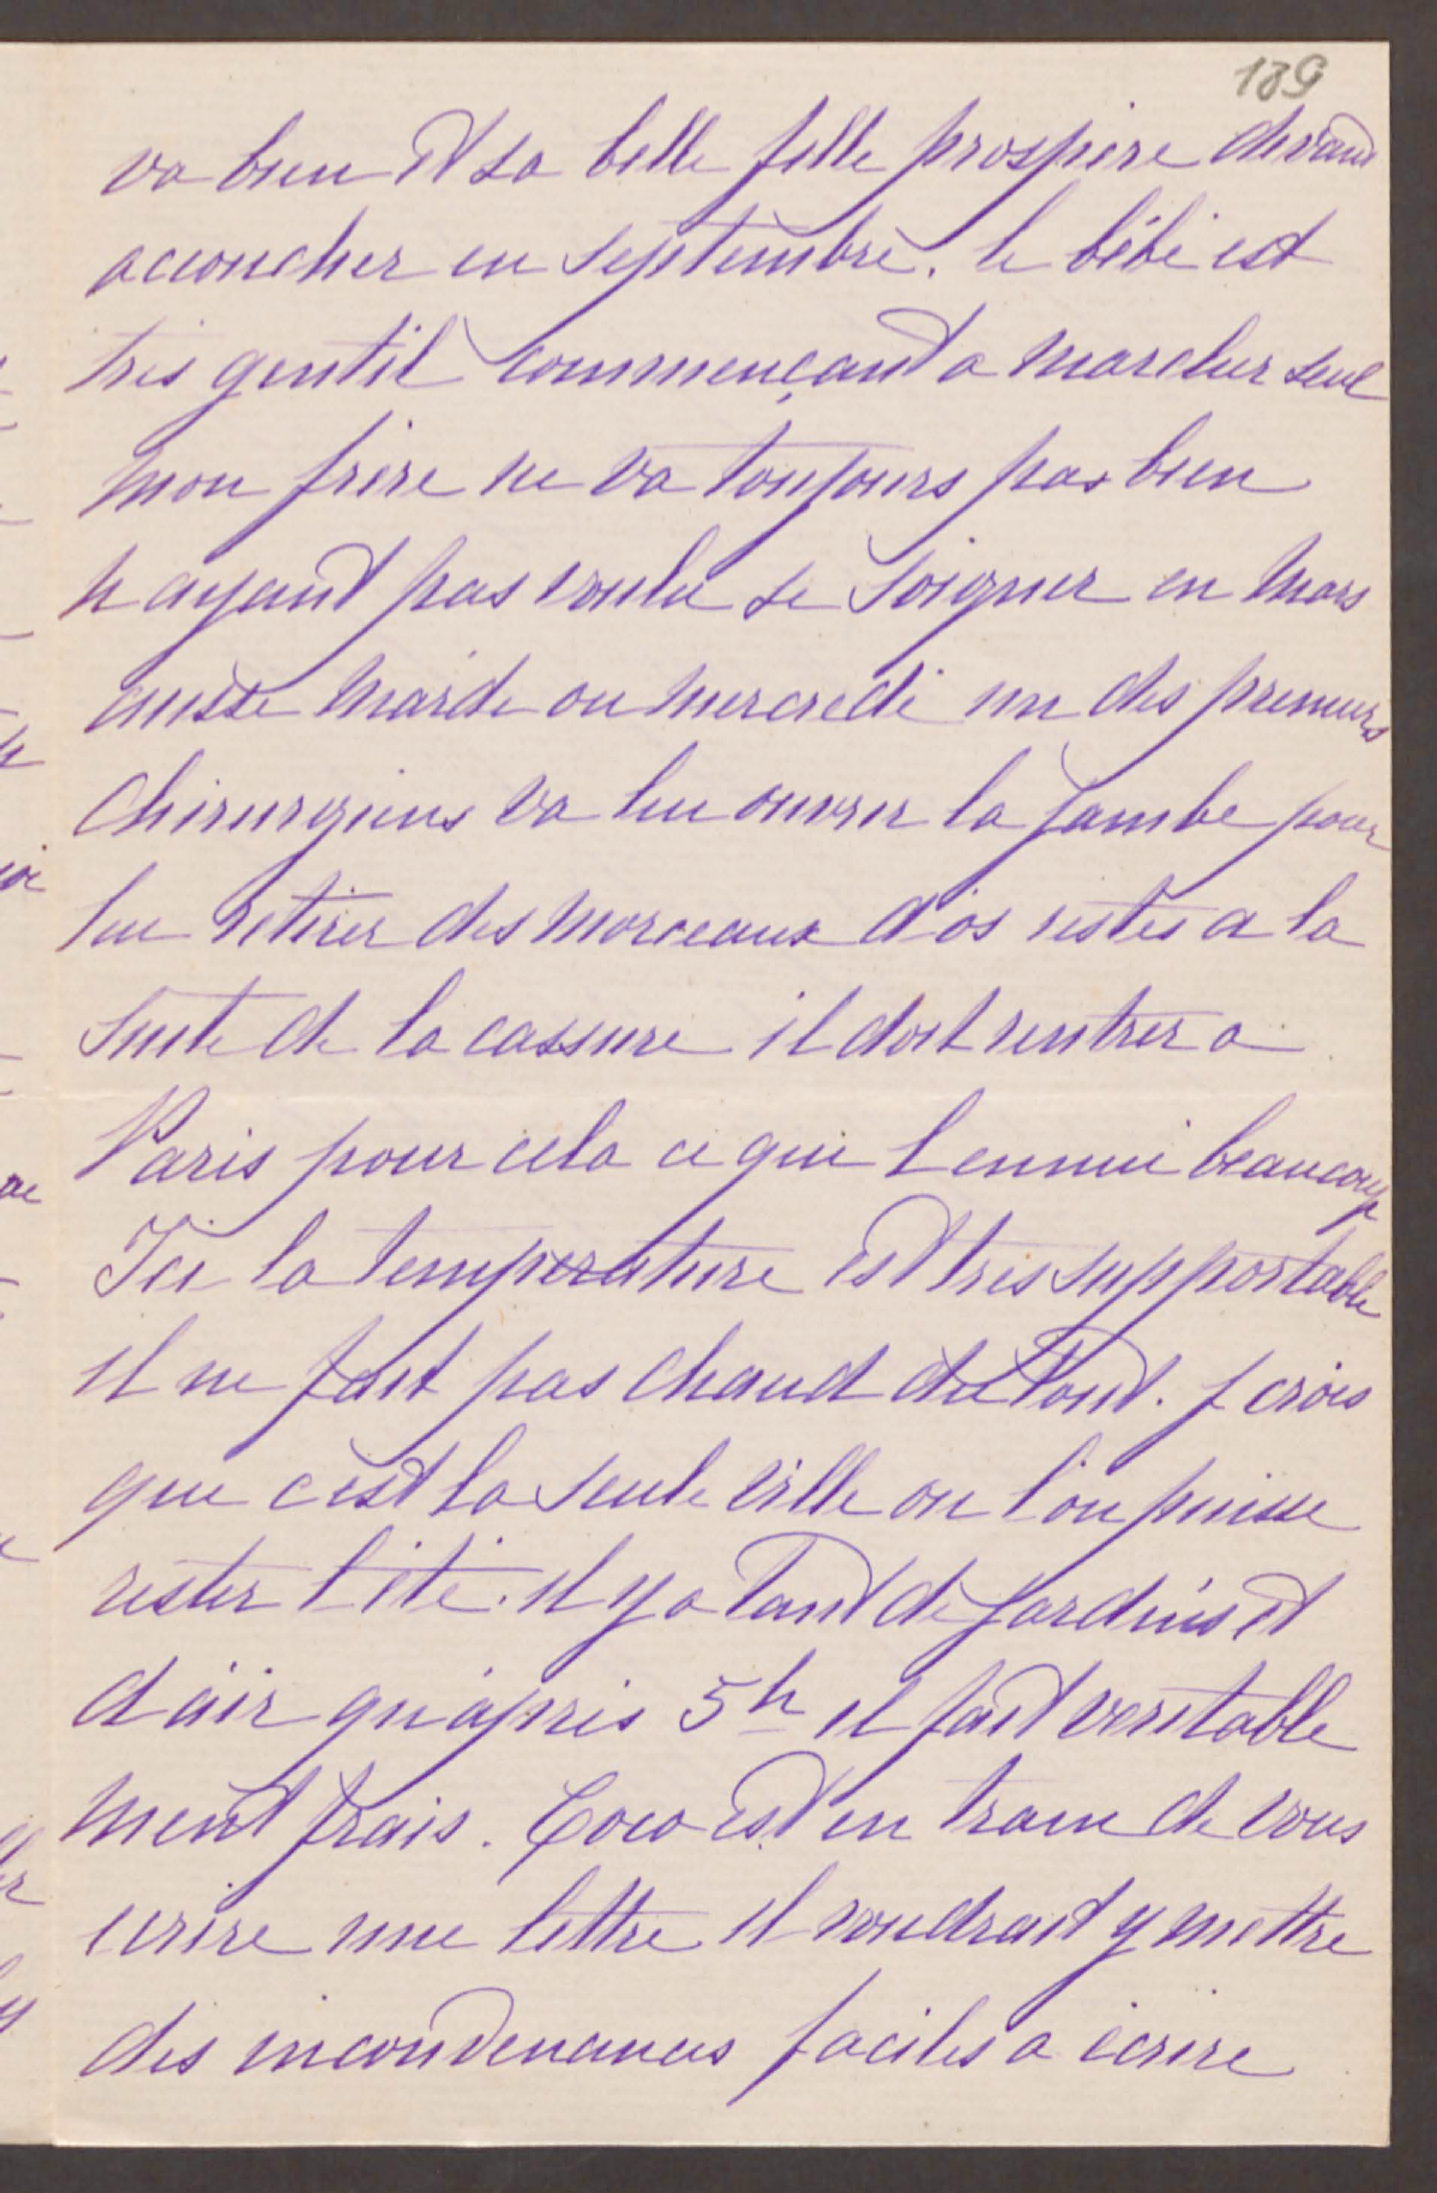 189
va bien et sa belle fille prospère devant
accoucher en septembre. le bébé est
très gentil commençant a marcher seul
mon frère ne va toujours pas bien
n ayant pas voulu se soigner en Mars
aussi mardi ou mercredi un des premiers
Chirurgiens va lui ouvrir la jambe pour
lui retirer des morceaux d'os restés a la
suite de la cassure il doit rentrer a
Paris pour cela ce qui l ennui beaucoup
Ici la température est très supportable
il ne fait pas chaud du tout. J crois
que c'est la seule ville ou l'on puisse
rester l'été. il y a tant de jardins et
d'air qu'après 5h il fait veritable
ment frais. Coco est en train de vous
ecrire une lettre il voudrait y mettre
des inconvenances faciles a écrire